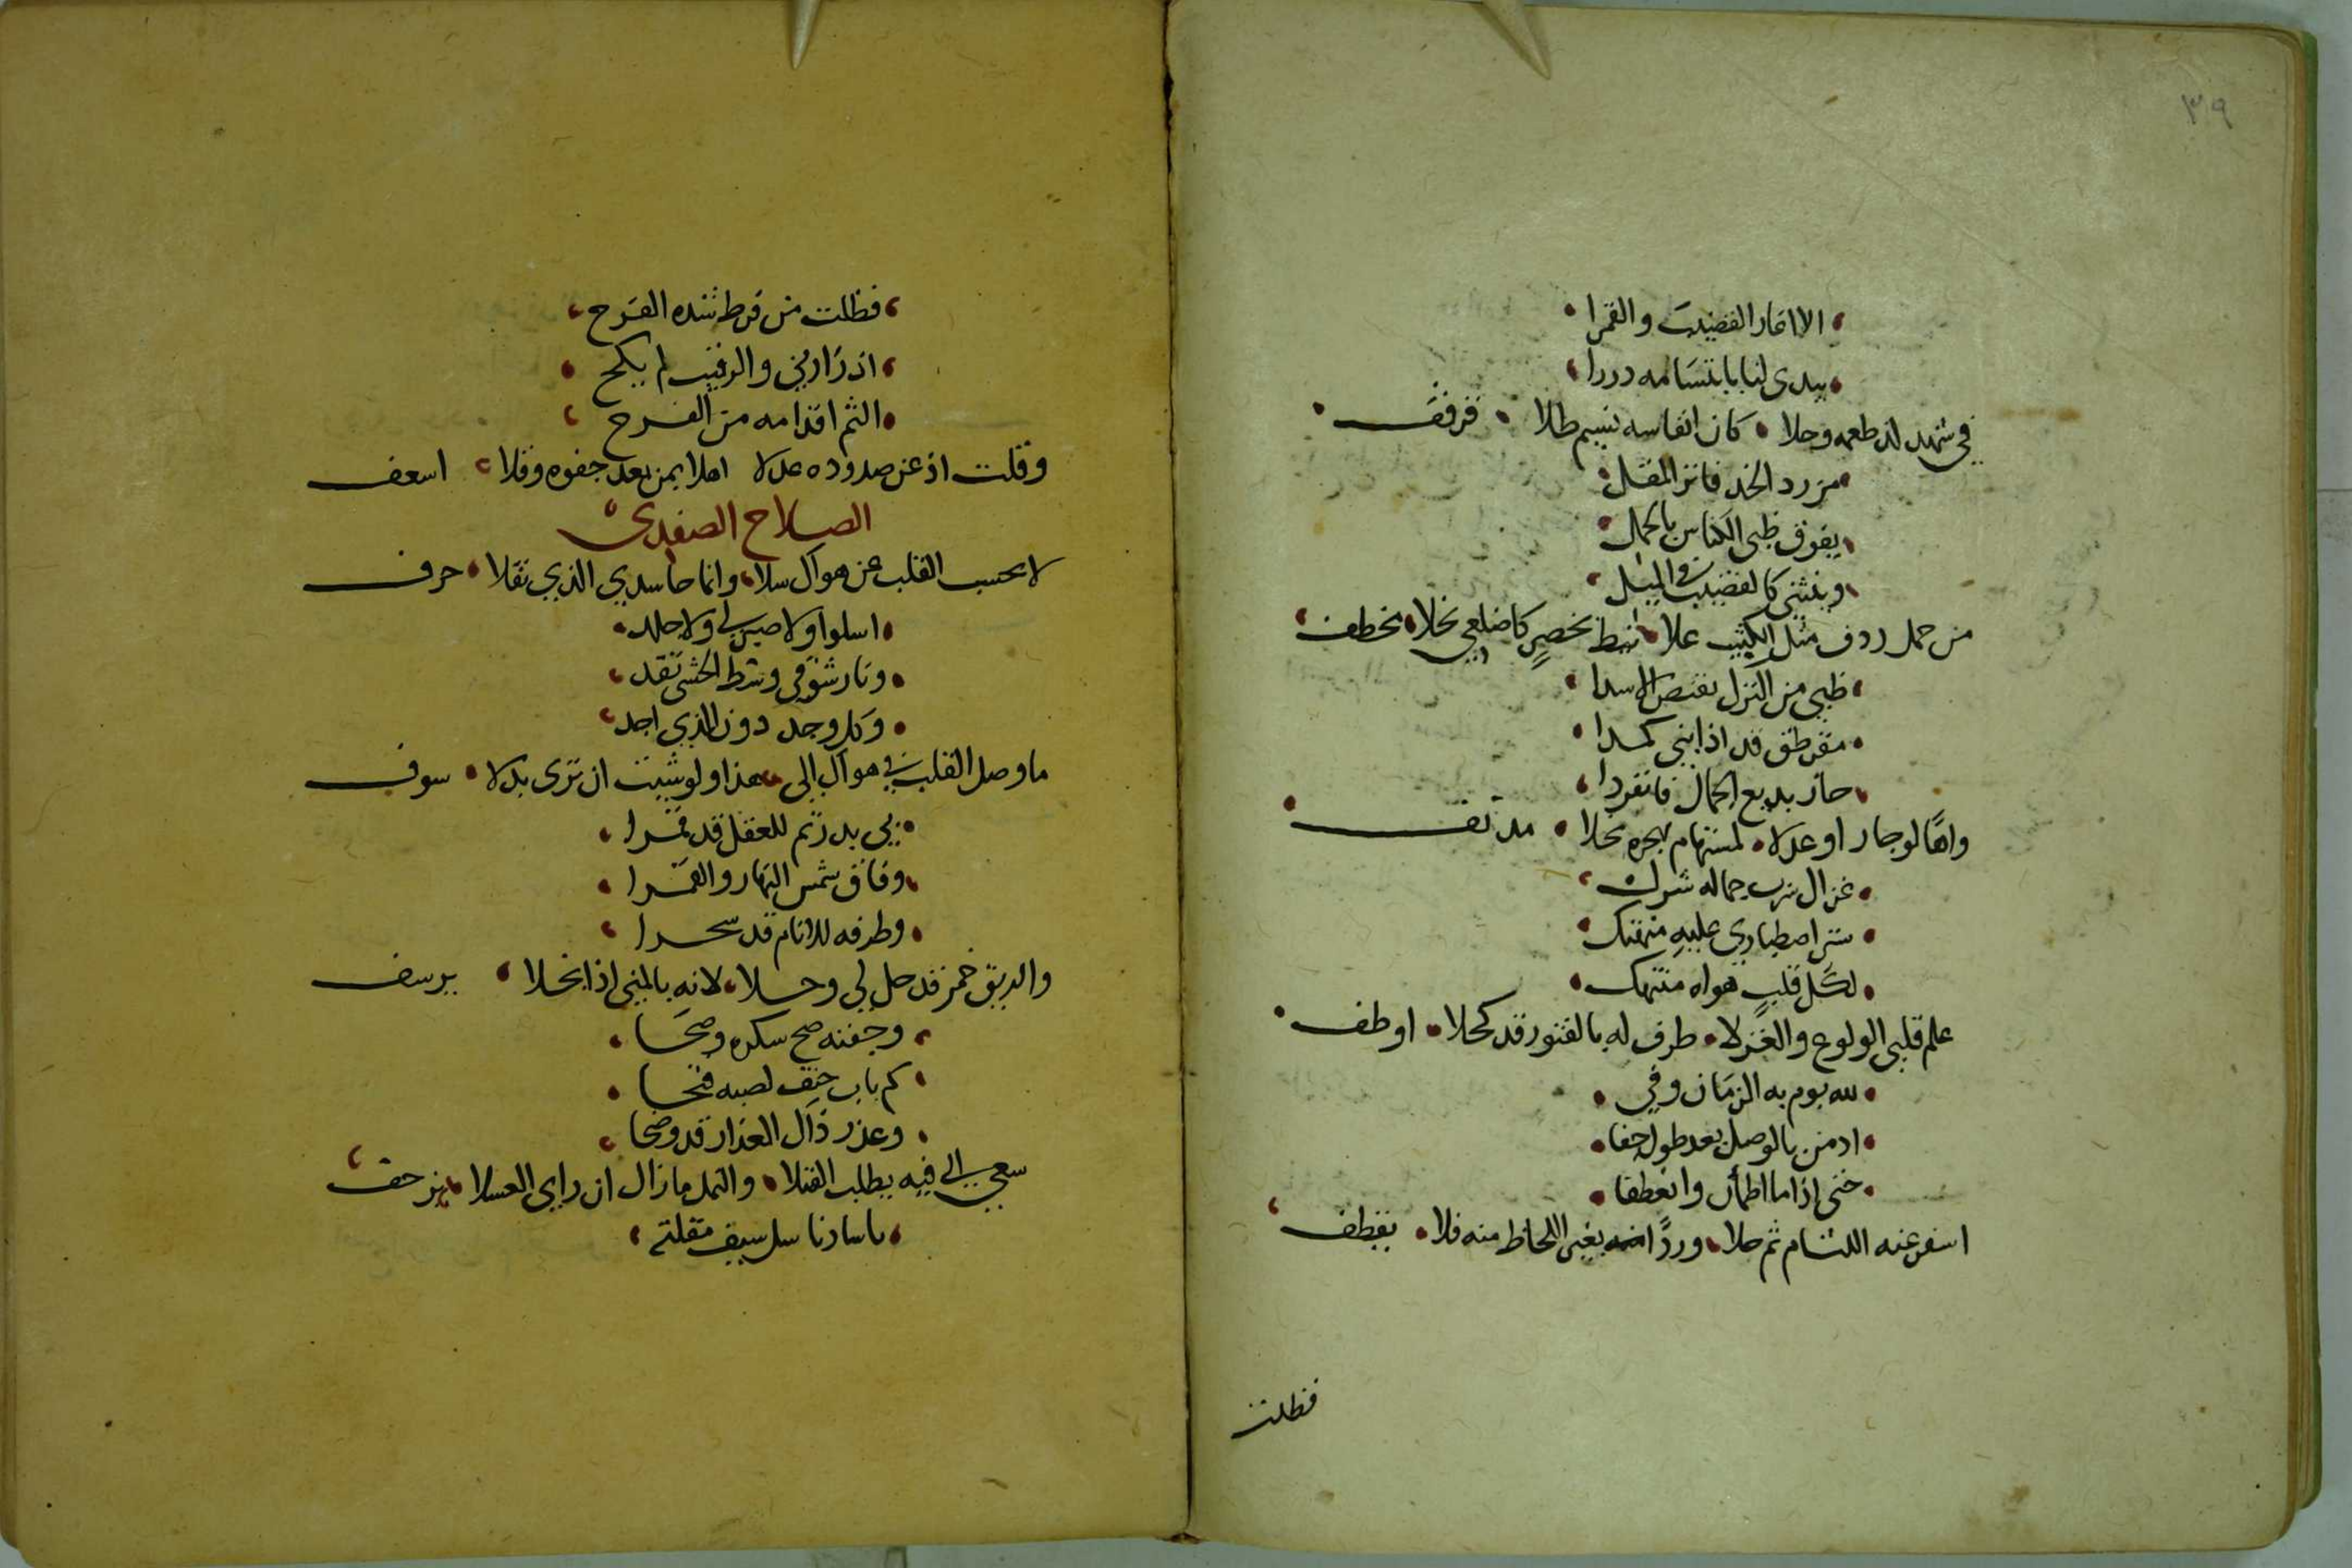 ٣٩
الا اغار القضيب والقمرا
يبدى لنا بابتسامه دررا
في شهد لذ طعمه وحلا كان انفاسه نسيم طلا قرقف
مورد الخد فاتر المقل
يفوق ظبى الكناس بالحمل
وينثنى كالقضيب في الميل
من حمل ردف مثل الكثيب علا نيط بخصر كاضلعي نحلا مخطف
ظبي من الترك يقنص الاسدا
مقرطق قد اذابني كمدا
حاز بديع الجمال فانفردا
واها لو جار او عدلا لمستهام بهجره نحلا مدنف
غزال سرب جماله شرك
ستر اصطباري عليه منهتك
لكل قلب هواه منتهك
علم قلبى الولوع والغزلا طرف له بالفتور قد كحلا اوطف
لله يوم به الزمان وفي
اذ من بالوصل بعد طول جفا
حتى اذا ما اطمأن وانعطفا
اسفر عنه اللثام ثم جلا وردًا بغير اللحاظ منه فلا يقطف
فظلت
فظلت من فرط شدة الفرح
اذ زارني والرقيب لم يلح
الثم اقدامه من الفرح
وقلت اذ عن صدوده عدلا اهلا بمن بعد جفوه وقلا اسعف
الصلاح الصفدي
لا يحسب القلب عن هواك سلا وانما حاسدي الذي نقلا حرف
اسلوا ولا صبر لي ولا جلد
ونار شوقي وسط الحشى تقد
وكل وجد دون الذي اجد
ما وصل القلب في هواك الى هذا ولو شيت ان ترى بدلا سوف
بي بدر تم للعقل قد قمرا
وفاق شمس النهار والقمرا
وطرفه للانام قد سحرا
والريق خمر قد حل لي وحلا لانه بالمنى اذا نحلا يرسف
وجفنه صح سكره وصحا
كم باب حتف لصبه فتحا
وعذر ذاك العذار قد وضحا
سعى الى فيه يطلب القبلا والنمل ما زال ان راى العسلا يزحف
يا سادنا سل سيف مقلته